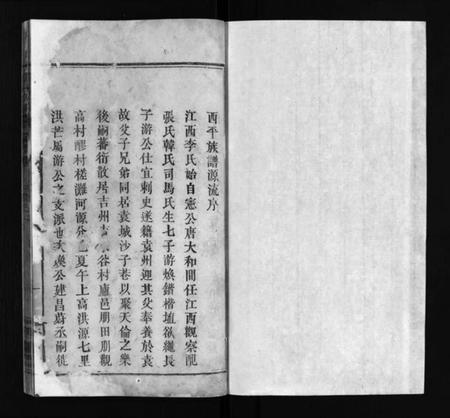 西平族譜源流序
江西李氏始自憲公唐大和間任江西觀察配
張氏韓氏司馬氏生七子游煥鍇楷埴欲繩長
子游公仕宜刺史遂籍袁州迎其父奉養於袁
故父子兄弟同居袁城沙子巷以聚天倫之樂
後嗣蕃衍散居吉州 谷村廬邑朋田朋觀
高村醪村槎灘河源 夏午上高洪源七里
洪芒屬游公之支派也 煥公建昌蔚丞嗣徙